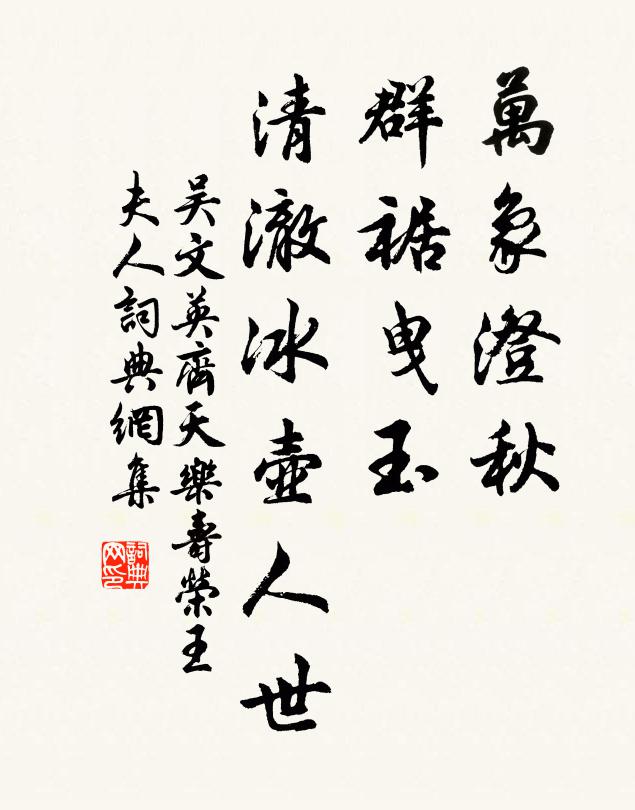 萬象澄秋
群裾曳玉
清澈冰壺人世
吴文英齊天樂壽榮王
夫人詞典網集
詞典网印